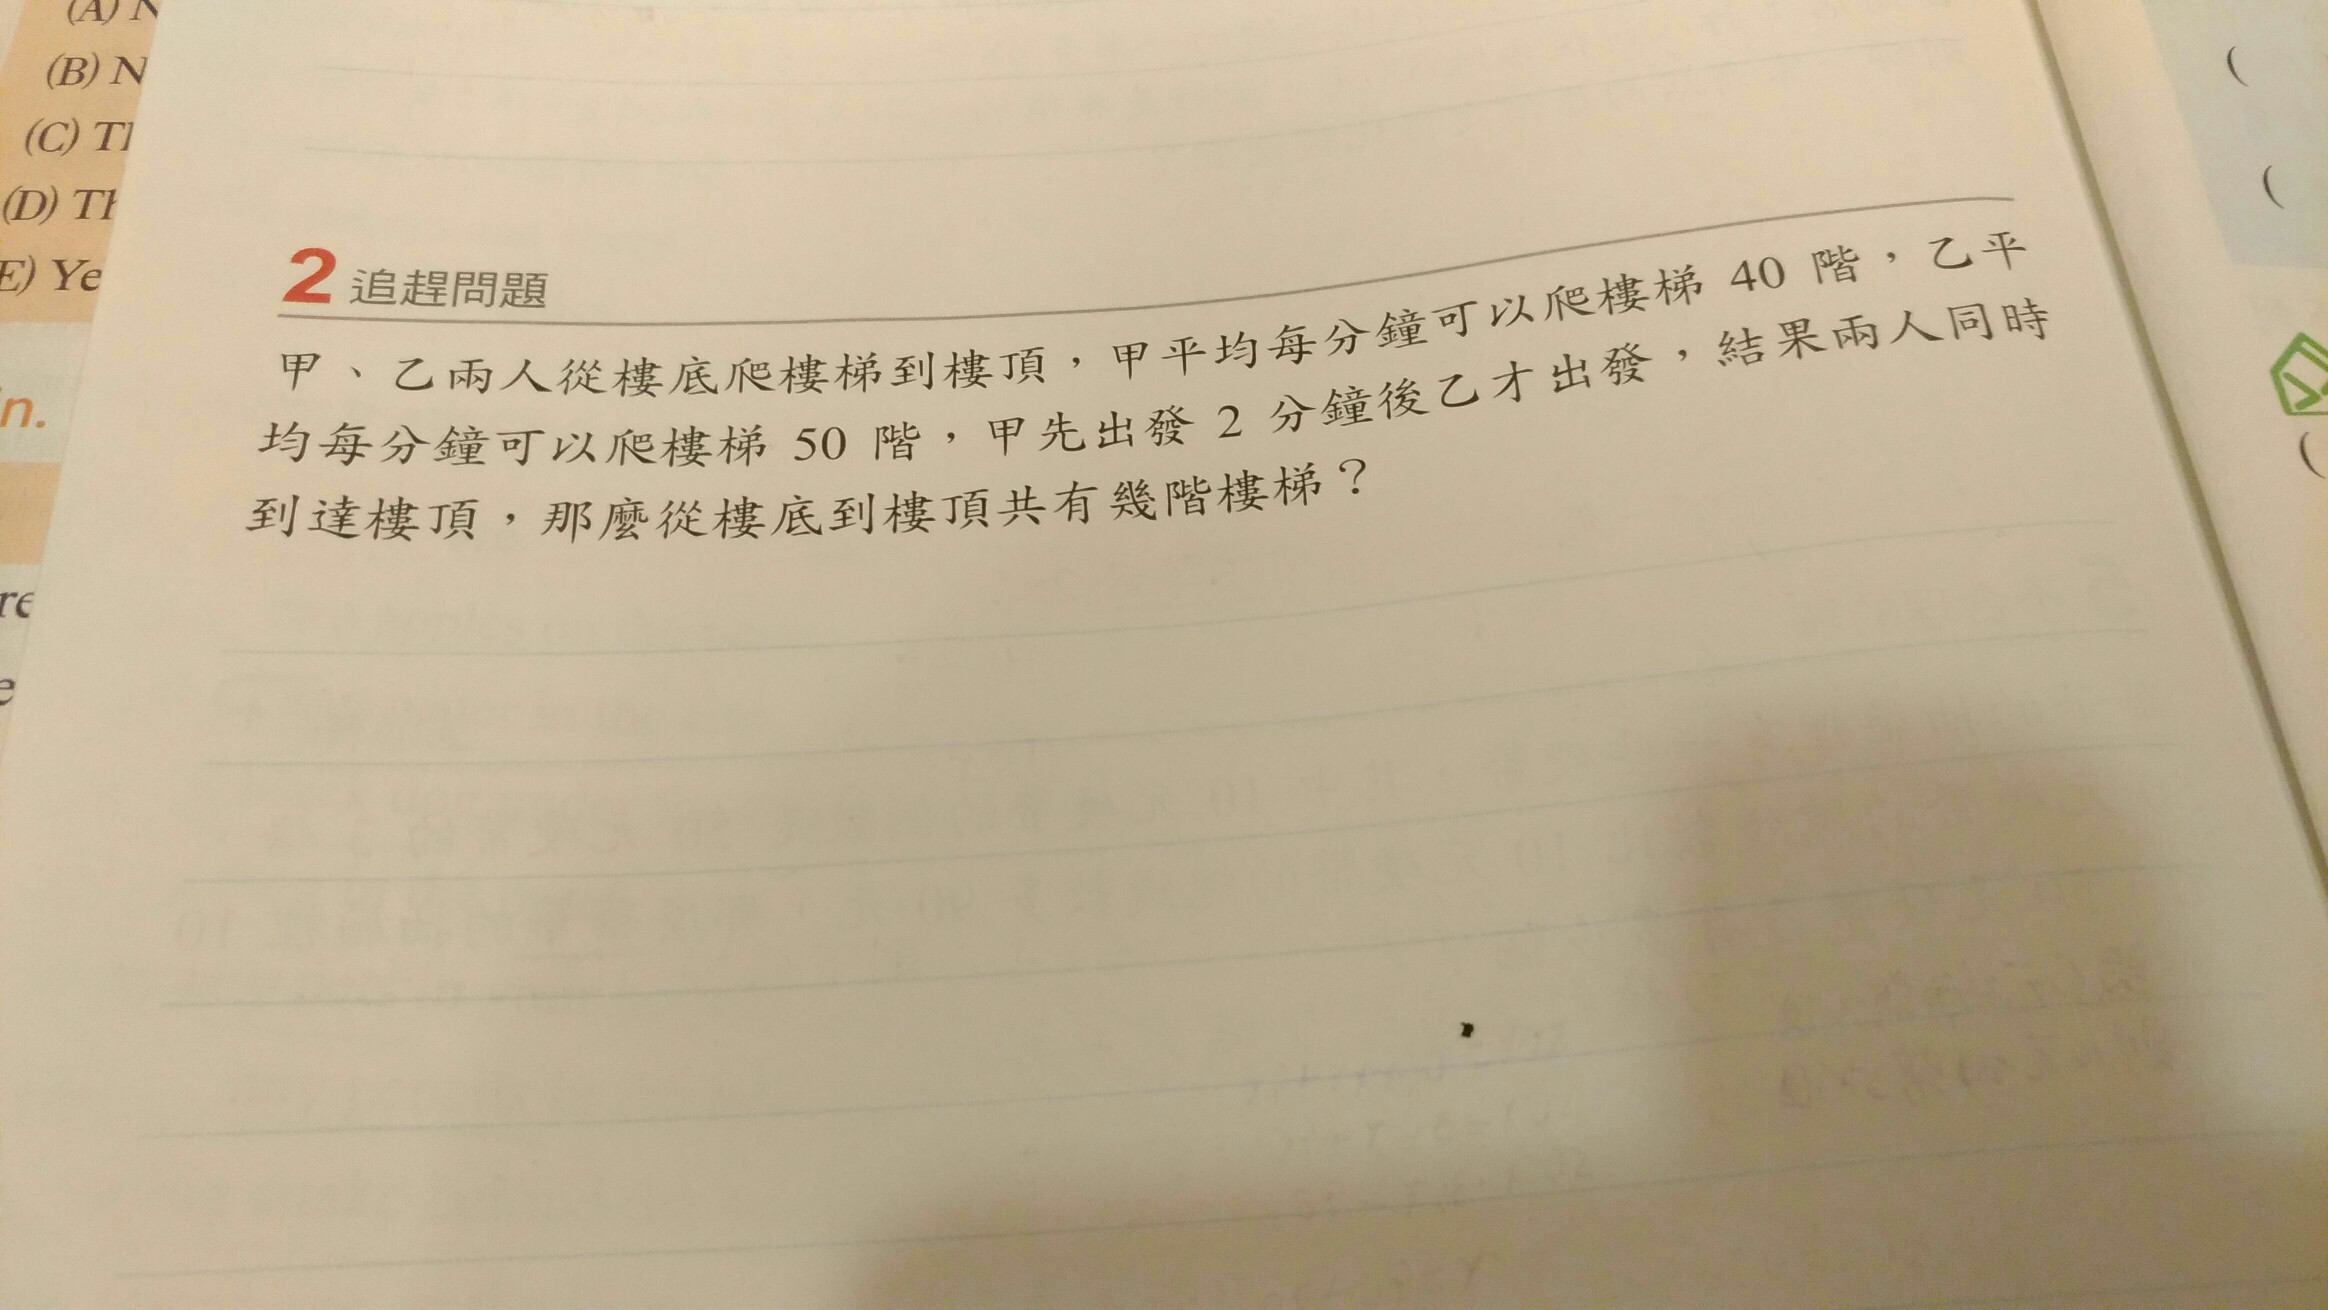 (A) N
(B) N
(C) Th
(D) Th
E) Ye
n.
re
e
2 追趕問題
甲、乙兩人從樓底爬樓梯到樓頂，甲平均每分鐘可以爬樓梯 40 階，乙平
均每分鐘可以爬樓梯 50 階，甲先出發 2 分鐘後乙才出發，結果兩人同時
到達樓頂，那麼從樓底到樓頂共有幾階樓梯？
(
(
(